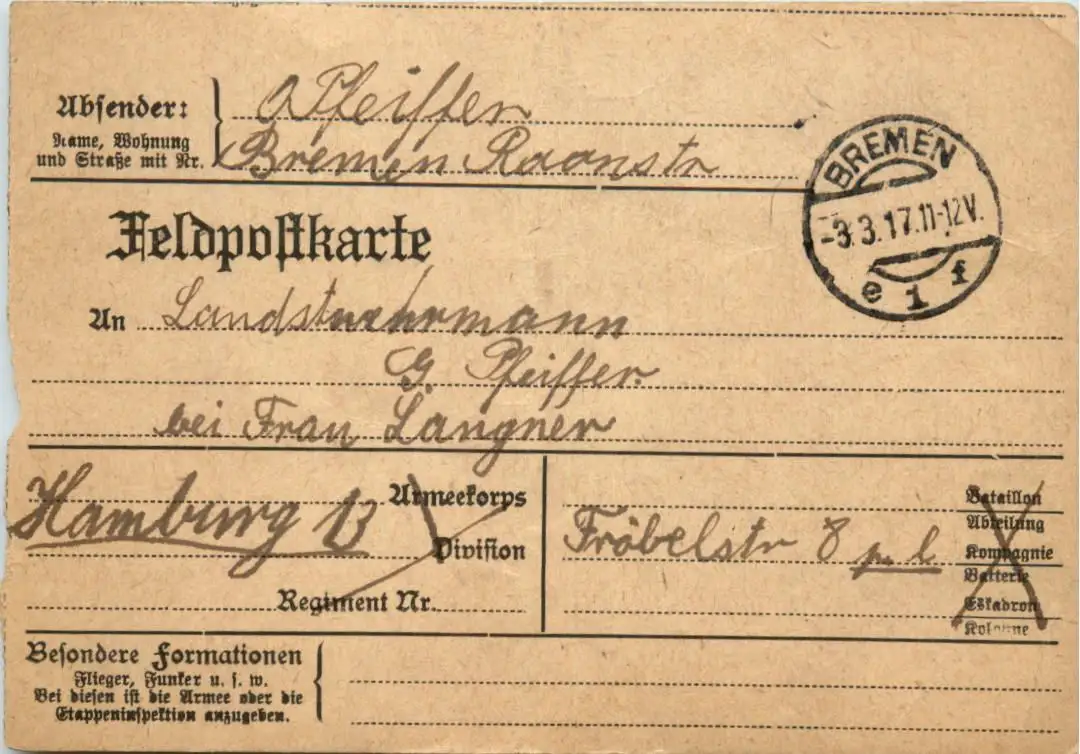 Absender:
Name, Wohnung
und Straße mit Nr.
A Pfeiffer
Bremen Roonstr
BREMEN
-3.3.17.11-12V.
e 1 f
Feldpostkarte
An Landstuehrmann
G. Pfeiffer
bei Frau Langner
Hamburg 13
Armeekorps
Division
Regiment Nr.
Fröbelstr 8 p. l
Bataillon
Abteilung
Kompagnie
Batterie
Eskadron
Kolonne
Besondere Formationen
Flieger, Funker u. s. w.
Bei diesen ist die Armee oder die
Etappeninspektion anzugeben.